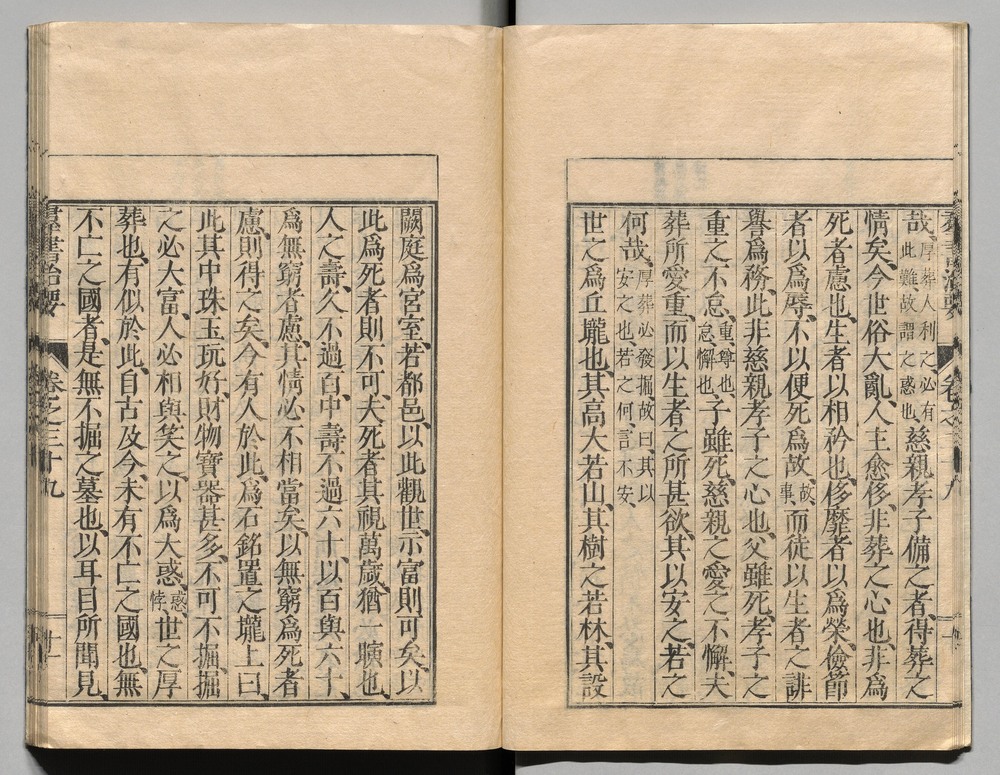 哉、厚葬人利之必有此難故謂之惑也、慈親孝子備之者、得葬之
情矣、今世俗大亂、人主愈侈、非葬之心也、非爲
死者慮也、生者以相矜也、侈靡者以爲榮、儉節
者以爲辱、不以便死爲故、故、事、而徒以生者之誹
譽爲務、此非慈親孝子之心也、父雖死、孝子之
重之不怠、重、尊也、怠、懈也、子雖死、慈親之愛之不懈、夫
葬所愛重、而以生者之所甚欲、其以安之、若之
何哉、厚葬必發掘、故曰、其以安之也、若之何、言不安、
世之爲丘壠也、其高大若山、其樹之若林、其設
闕庭爲宮室、若都邑、以此觀世、示富則可矣、以
此爲死者則不可、夫死者其視萬歲、猶一瞚也、
人之壽、久不過百、中壽不過六十、以百與六十、
爲無窮者慮、其情必不相當矣、以無窮爲死者
慮、則得之矣、今有人於此、爲石銘置之壠上曰、
此其中珠玉玩好、財物寶器甚多、不可不掘、掘
之必大富、人必相與笑之、以爲大惑、惑、悖、世之厚
葬也、有似於此、自古及今、未有不亡之國也、無
不亡之國者、是無不掘之墓也、以耳目所聞見、
群書治要 卷之三十九 十一